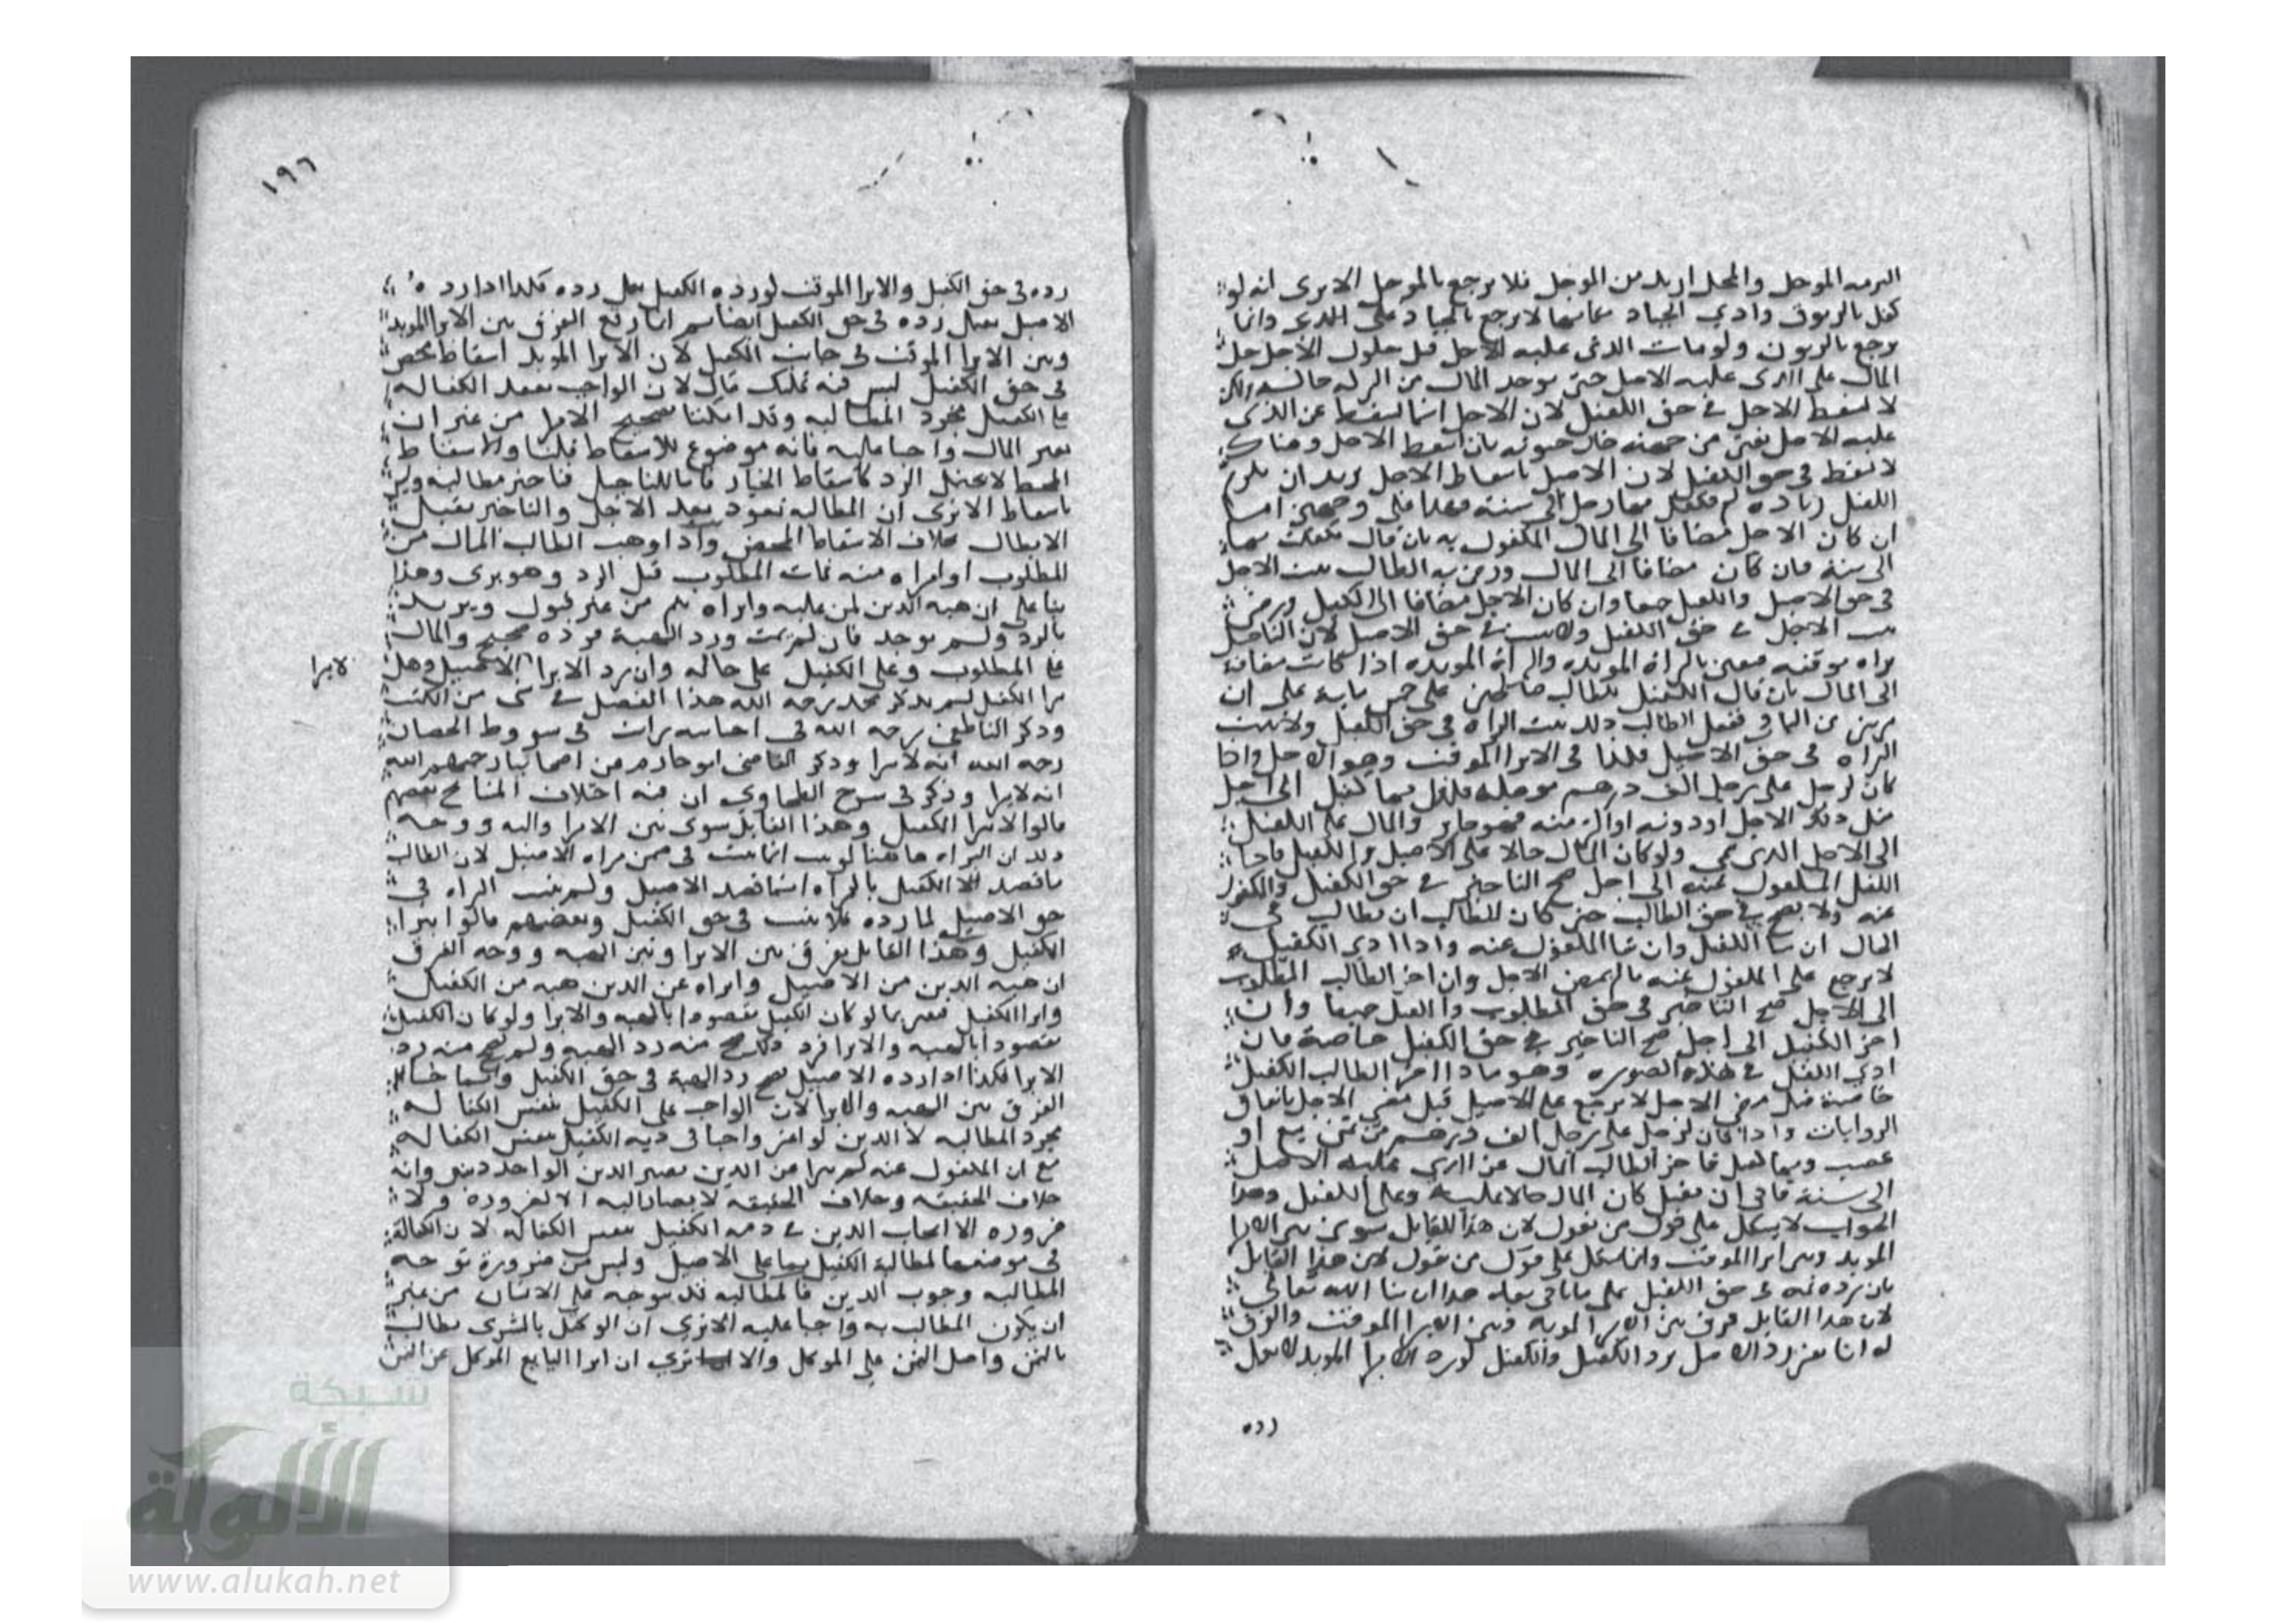 المؤجل والمعجل ازيد من الموجل فلا يرجع بالموجل الا يرى انه لو
كفل بالزيوف وادي الجياد لا يرجع بالجياد على الذي وانما
يرجع بالزيوف ولو مات الذي عليه الاصل قبل حلول الاجل حل
المال على الذي عليه الاصل حتى يوخذ المال من
لا يسقط الاجل في حق الكفيل لان الاجل انما يسقط عن الذي
عليه الاصل بان اسقط الاجل وهناك
لا يسقط في حق الكفيل لان الاصيل باسقاط الاجل يريد ان يلزم
الكفيل زيادة لم
ان كان الاجل مضافا الى المال المكفول به بان قال تكفلت بها
الى سنة فان كان مضافا الى المال ورضي به الطالب يثبت الاجل
في حق الاصيل والكفيل جميعا وان كان الاجل مضافا الى الكفيل
يثبت الاجل في حق الكفيل ولا يثبت في حق الاصيل لان التاجيل
براه موقتة بالبراة الموبده والبراة الموبده اذا كانت مضافة
الى المال بان قال الكفيل للطالب على ان
الطالب ذلك يثبت البراه في حق الكفيل ولا يثبت
البراه في حق الاصيل فكذا في الابرا الموقت وهو الاجل واذا
كان لرجل على رجل الف درهم موجلة فكفل بها كفيل الى اجل
مثل ذلك الاجل او دونه او اكثر منه فهو جايز والمال على الكفيل
الى الاجل الذي سمي ولو كان المال حالا على الاصيل
الى اجل صح التاخير في حق الكفيل والمكفول
عنه ولا يصح في حق الطالب حتى كان للطالب ان يطالب في
الحال ان شا الكفيل وان شا المكفول عنه واذا ادي الكفيل
لا يرجع على المكفول عنه مالم يمض الاجل وان اخر الطالب المطلوب
الى الاجل صح التاخير في حق المطلوب والكفيل جميعا وان
اخر الكفيل الى اجل صح التاخير في حق الكفيل خاصة فان
ادي الكفيل في هذه الصوره وهو ما اذا اخر الطالب الكفيل
خاصة قبل مضي الاجل لا يرجع على الاصيل قبل مضي الاجل باتفاق
الروايات واذا كان لرجل على رجل الف درهم من ثمن بيع او
غصب وبها كفيل فاخر الطالب المال عن الذي عليه الاصل
الى سنة فابى ان يقبل كان المال حالا عليه وعلى الكفيل وهذا
الجواب لا يشكل على قول من يقول لان هذا القايل سوى بين الابرا
الموبد وبين ابرا الموقت وانما يشكل على قول من يقول لان هذا القايل
بان رده في حق الكفيل على ما ياتي بعد هذا ان شا الله تعالي
لان هذا القايل فرق بين الابرا الموبد وبين الابرا الموقت والفرق
له انا نعتبر رد الاصيل برد الكفيل والكفيل لو رد الابرا الموبد لا يعمل
رده
١٩٦
رده في حق الكفيل والابرا الموقت لو رده الكفيل يعمل رده فكذا اذا رده
الاصيل يعمل رده في حق الكفيل ايضا ثم انما وقع الفرق بين الابرا الموبد
وبين الابرا الموقت في جانب الكفيل لان الابرا الموبد اسقاط محض
في حق الكفيل ليس فيه تمليك مال لان الواجب بعقد الكفاله
على الكفيل مجرد المطالبه وقد امكننا تصحيح الابرا من غير ان
نعتبر المال واجبا عليه فانه موضوع للاسقاط قلنا والاسقاط
المحض لا يحتمل الرد كاسقاط الخيار فاما التاجيل تاخير مطالبه وليس
باسقاط الا ترى ان المطالبه تعود بعد الاجل والتاخير يقبل
الابطال بخلاف الاسقاط المحض واذا وهب الطالب المال من
المطلوب او ابراه منه فمات المطلوب قبل الرد وهو بري وهذا
بنا على ان هبه الدين لمن عليه وابراه يتم من غير قبول ويرتد
بالرد ولم يوجد فان لم يمت ورد الهبة فرده صحيح والمال
على المطلوب وعلى الكفيل على حاله وان رد الابرا الاصيل وهل
لابرا
يبرا الكفيل لم يذكر محمد رحمه الله هذا الفصل في شي من الكتب
وذكر الناطفي رحمه الله في اجناسه
رحمه الله انه لا يبرا وذكر القاضي ابو حازم من اصحابنا رحمهم الله
انه لا يبرا وذكر في شرح الطحاوي ان فيه اختلاف المشايخ بعضهم
قالوا لا يبرا الكفيل وهذا القايل سوى بين الابرا والهبه ووجه
ذلك ان البراه هاهنا لو ثبت انما يثبت في ضمن براه الاصيل لان الطالب
ما قصد الكفيل بالبراه انما قصد الاصيل ولم يثبت البراه في
حق الاصيل لما رده فلا يثبت في حق الكفيل وبعضهم قالوا يبرا
الكفيل وهذا القايل يفرق بين الابرا وبين الهبه ووجه الفرق
ان هبه الدين من الاصيل وابراه عن الدين هبه من الكفيل
وابرا الكفيل فيعتبر بما لو كان الكفيل مقصودا بالهبه والابرا ولو كان الكفيل
مقصودا بالهبه والابرا فرد صح منه رد الهبه ولم يصح منه رد
الابرا فكذا اذا رده الاصيل يصح رد الهبة في حق الكفيل
الفرق بين الهبه والابرا لان الواجب على الكفيل بنفس الكفاله
مجرد المطالبه لا الدين لو اعتبر واجبا في ذمه الكفيل بنفس الكفاله
مع ان المكفول عنه لم يبرا عن الدين يصير الدين الواحد دينين وانه
خلاف الحقيقه وخلاف الحقيقه لا يصار اليه الا لضروره ولا
ضروره الا ايجاب الدين في ذمه الكفيل بنفس الكفاله لان الكفالة
في موضعها لمطالبة الكفيل بما على الاصيل وليس من ضرورة توجه
المطالبه وجوب الدين فالمطالبه قد يتوجه على الانسان من غير
ان يكون المطالب به واجبا عليه الا ترى ان الوكيل بالشرى يطالب
بالثمن واصل الثمن على الموكل والا ترى ان ابرا البايع الموكل عن الثمن
شبكة
الألولة
www.alukah.net